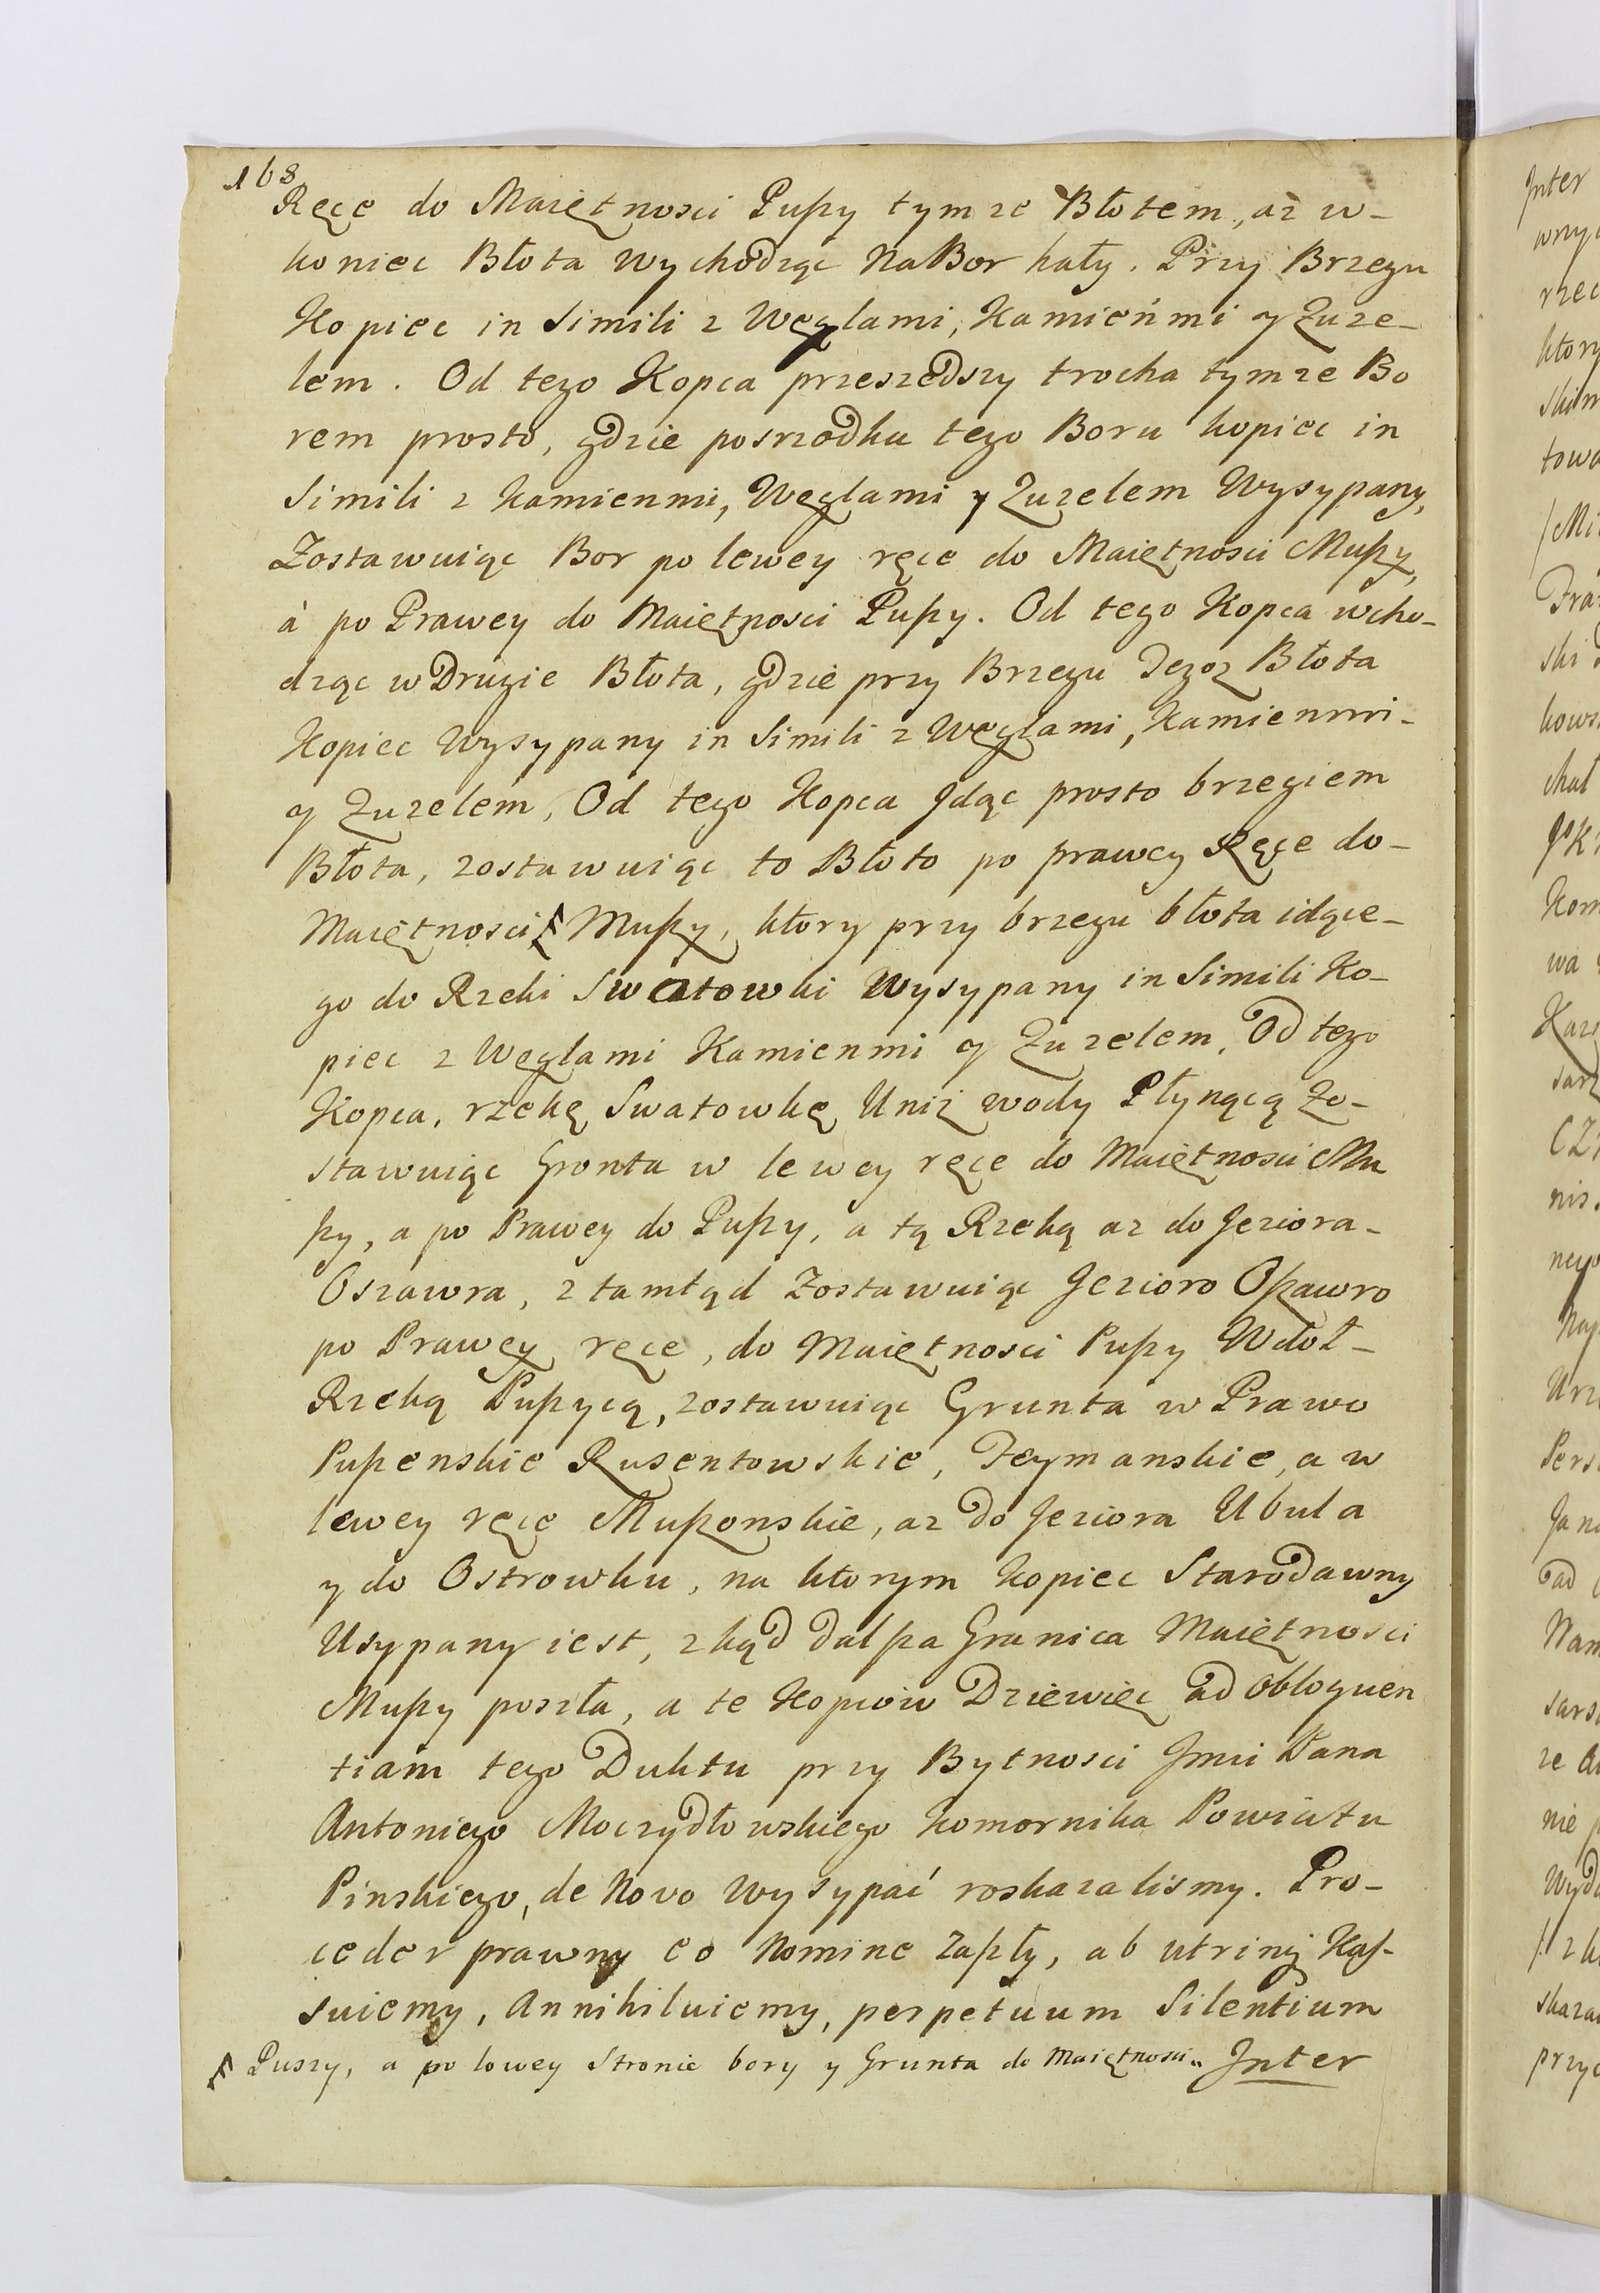 168
Ręce do Maiętnosci Pußy tymze Błotem, aż w-
koniec Błota wychodząc Na Bor hały. Przy Brzegu
Kopiec in Simili z Węglami, Kamieńmi y Zuze-
lem. Od tego Kopca przeszedszy trocha tymze Bo
rem prosto, gdzie posrzodku tego Boru kopiec in
Simili z kamienmi, Węglami y Zuzelem Wysypany,
Zostawuiąc Bor po lewey ręce do Maiętnosci Mußy,
à po Prawey do Maiętnosci Pußy. Od tego Kopca wcho-
dząc w Drugie Błota, gdzie przy Brzegu Tegoz Błota
Kopiec Wysypany in Simili z Węglami, Kamienmi-
y Zuzelem, Od tego Kopca Jdąc prosto brzegiem
Błota, zostawuiąc to Błoto po prawey Ręce do-
Maiętnosci Mußy, ktory przy brzegu błota idące-
go do Rzeki Swatowki Wysypany in Simili Ko-
piec z Węglami Kamienmi y Zuzelem, Od tego
Kopca, rzekę Swatowkę Uniz wody Płynącą Zo-
stawuiąc Gronta w lewey ręce do Maiętnosci Mu
ßy, a po Prawey do Pußy, a tą Rzeką az do Jeziora-
Oszawra, z tamtąd Zostawuiąc Jezioro Oßawro
po Prawey ręce, do Maiętnosci Pußy Wdoł-
Rzeką Pußycą, zostawuiąc Grunta w Prawo
Pußenskie Rusentowskie, Teymanskie, a w
lewey ręce Mußonskie, az do Jeziora Ubula
y do Ostrowku, na ktorym kopiec Starodawny
Usypany iest, zkąd dalßa Granica Maiętnosci
Mußy poszła, a te Kopcow Dziewięc ad obloquen
tiam tego Duktu przy Bytnosci Jmci Pana
Antoniego Moczydłowskiego komornika Powiatu
Pinskiego, de Novo Wysypać roskazalismy. Pro-
ceder prawny eo Nomine Zaßły, ab utrinq Kas-
suiemy, Annihiluiemy, perpetuum Silentium
Puszy, a po lowey Stronie bory y Grunta do Maiętnosci" Jnter